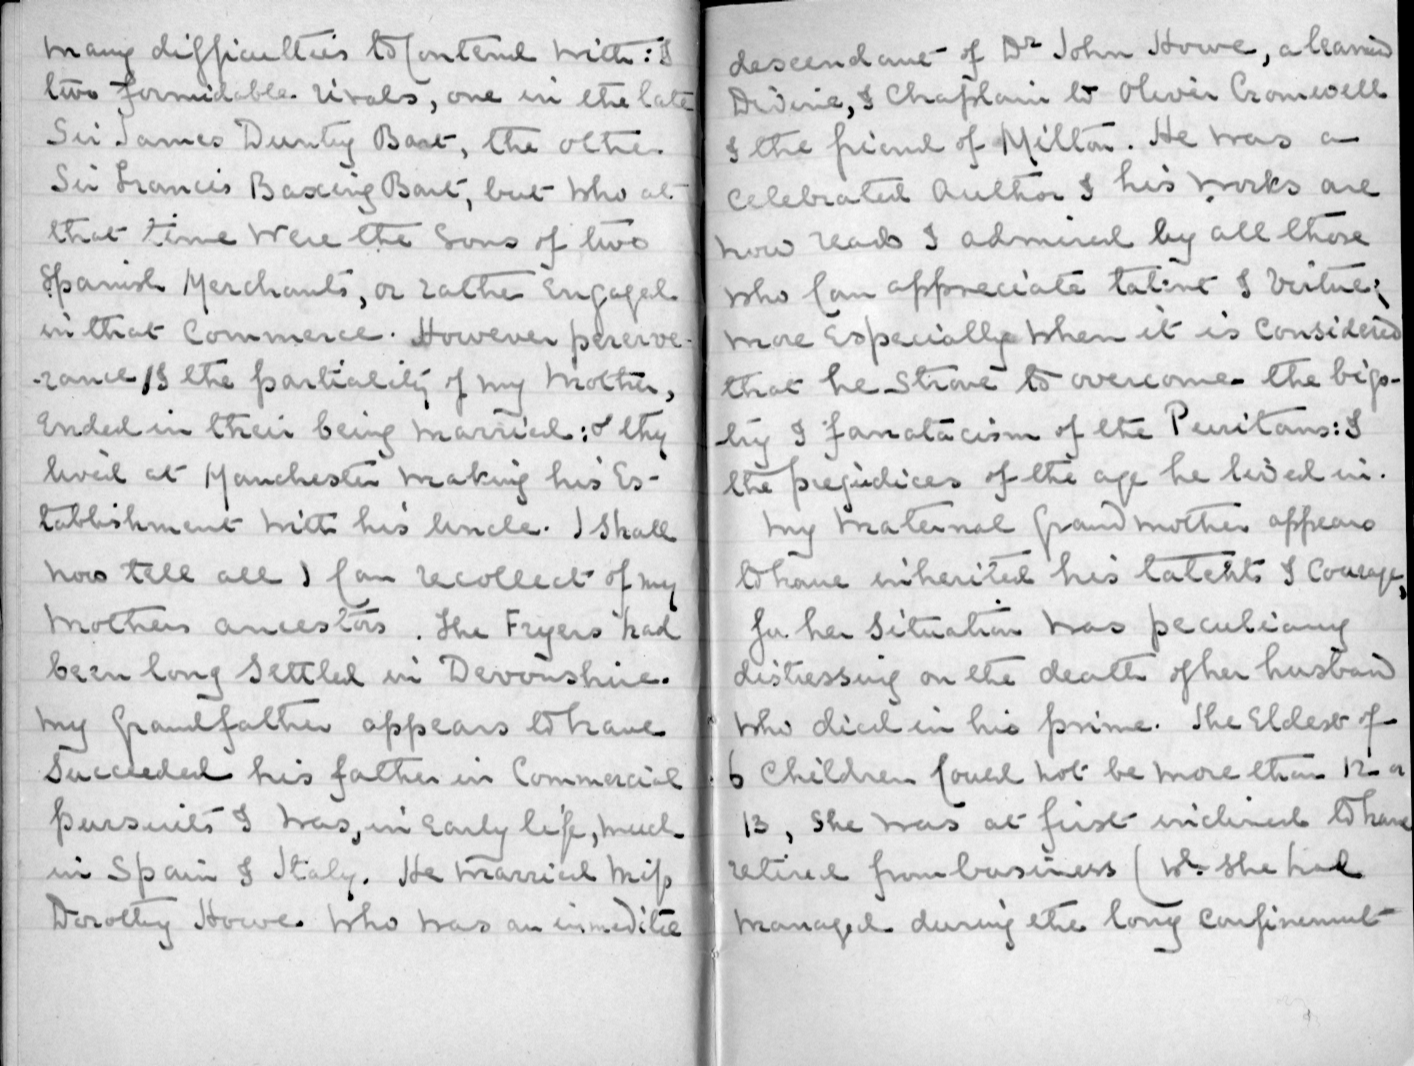 many difficulties to Contend with: &
two formidable rivals, one in the late
Sir James Duntz Bart, the other
Sir Francis Baring Bart, but who at
that time were the Sons of two
Spanish Merchants, or rather Engaged
in that Commerce. However perserve-
-rance, & the partiality of my Mother,
Ended in their being married: & they
lived at Manchester making his Es-
tablishment with his Uncle. I shall
now tell all I Can recollect of my
Mothers ancestors. The Fryers had
been long Settled in Devonshire.
My Grandfather appears to have
Succeeded his father in Commercial
pursuits & was, in Early life, much
in Spain & Italy. He married Miss
Dorothy Howe who was an immediate
descendant of Dr John Howe, a learned
Divine, & Chaplain to Oliver Cromwell
& the friend of Milton. He was a
Celebrated Author & his works are
now read & admired by all those
who Can appreciate talent & Virtue;
more Especially when it is Considered
that he Strove to overcome the bigo-
-try & fanatacism of the Puritans: &
the prejudices of the age he lived in.
My Maternal Grandmother appears
to have inherited his talents & Courage,
for her Situation was peculiarly
distressing on the death of her husband
who died in his prime. The Eldest of
6 Children Could not be more than 12 or
13, She was at first inclined to have
retired from business (wh. She had
managed during the long Confinement